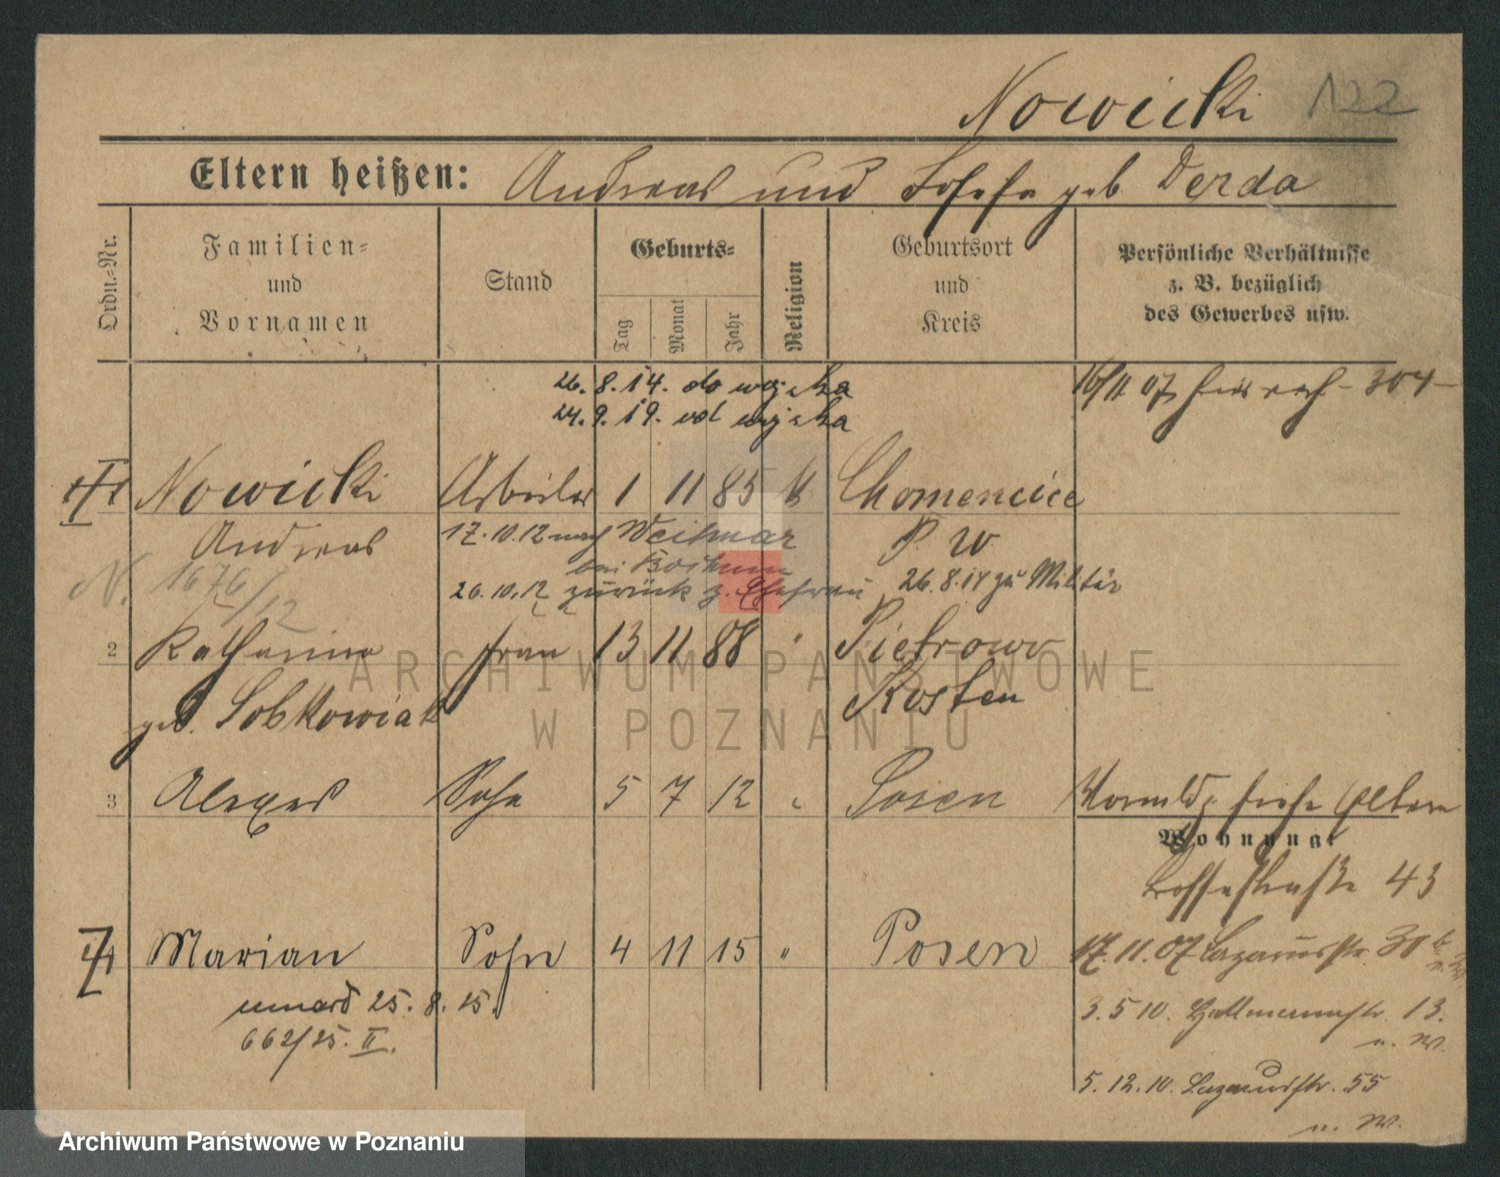 Nowicki 122
Eltern heißen: Andreas und Josefa geb Derda
Ordn.-Nr.
Familien-
und
Vornamen
Stand
Geburts-
Tag
Monat
Jahr
Religion
Geburtsort
und
Kreis
Persönliche Verhältnisse
z. B. bezüglich
des Gewerbes usw.
26. 8. 14. do wojska
24. 9. 19. od wojska
16/11 07 304
Nowicki Arbeiter 1 11 85 k Chomencice
Andreas 17. 10. 12 nach Weitmar P. W
bei Bochum
N. 1676/12 26. 10. 12 zurück z. Ehefrau 26. 8. 14 zu Militär
2 Katharina Frau 13 11 88 " Pietrowo
geb. Sobkowiak Kosten
3 Alexes Sohn 5 7 12 " Posen siehe Eltern
Wohnung:
43
Marian Sohn 4 11 15 " Posen 17. 11. 07 Lazarusstr. 30
umarł 25. 8. 25. 3. 5 10. 13.
662/25. II. n. W.
5. 12. 10. Lazarusstr. 55
n. W.
ARCHIWUM PAŃSTWOWE
W POZNANIU
Archiwum Państwowe w Poznaniu